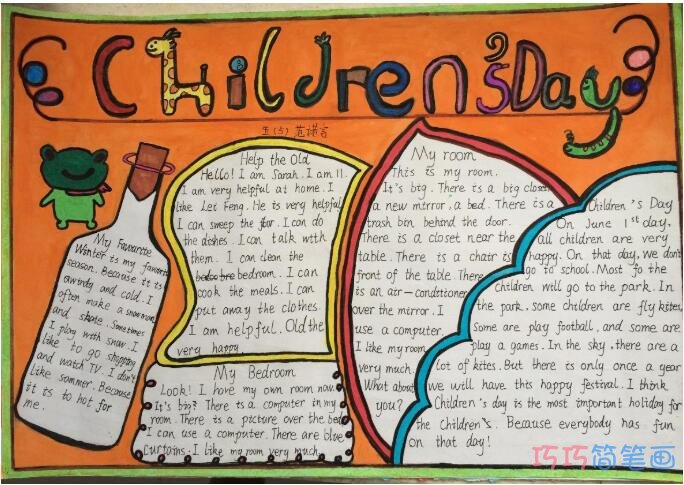 Children's Day
五(5) 范诺言
Help the Old
Hello! I am Sarah. I am 11.
I am very helpful at home. I
like Lei Feng. He is very helpful
I can sweep the floor. I can do
the dishes. I can talk with
them. I can clean the
bedroom. I can
cook the meals. I can
put away the clothes.
I am helpful. Old the
very happy.
My room
This is my room.
It's big. There is a big closet
a new mirror, a bed. There is a
trash bin behind the door.
There is a closet near the
table. There is a chair is
front of the table. There
is an air-condstioner
over the mirror. I
use a computer.
I like my room
very much.
What about
you?
Children's Day
On June 1st day,
all children are very
happy. On that day, we don't
go to school. Most fo the
children will go to the park. In
the park, some children are fly kites,
Some are play football, and some are
play a games. In the sky, there are a
lot of kites. But there is only once a year
we will have this happy festival. I think
Children's day is the most important holiday for
the children's. Because everybody has fun
on that day!
My Favourite
Winter is my favorite
season. Because it is
windy and cold. I
often make a snowman
and skate. Sometimes
I play with snow. I
like to go shopping
and watch TV. I don't
like sommer. Because
it is to hot for
me.
My Bedroom
Look! I have my own room now.
It's big? There is a computer in my
room. There is a picture over the bed
I can use a computer. There are blue
curtains. I like my room very much.
巧巧简笔画